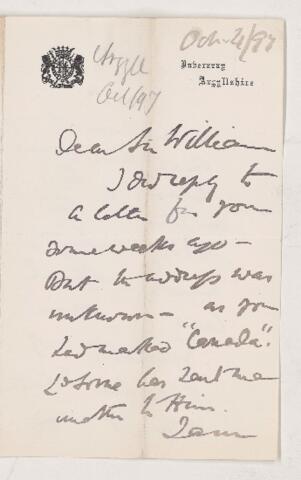 Oct. 4/97
Argyll
Oct/97
Inveraray
Argyllshire
Dear Sir William
I did reply to
a letter from you
some weeks ago -
But the address was
unknown - as you
had marked "Canada".
some has sent me
to Him.
I am